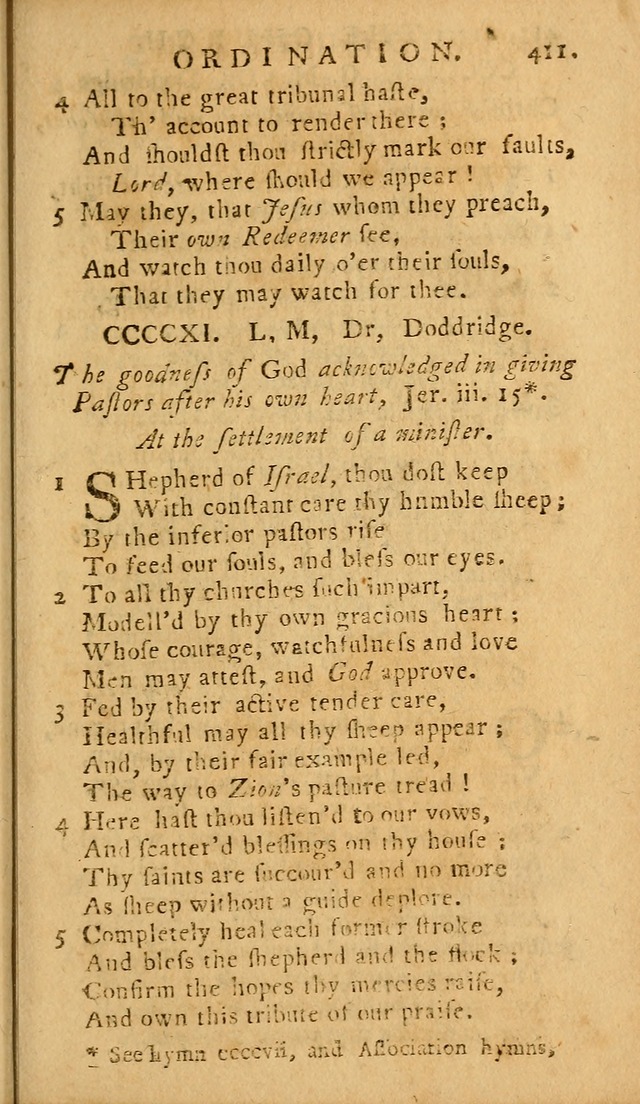 ORDINATION. 411.
4 All to the great tribunal haſte,
Th' account to render there ;
And ſhouldſt thou ſtrictly mark our faults,
Lord, where ſhould we appear !
5 May they, that Jeſus whom they preach,
Their own Redeemer ſee,
And watch thou daily o'er their ſouls,
That they may watch for thee.
CCCCXI. L, M, Dr, Doddridge.
The goodneſs of God acknowledged in giving
Paſtors after his own heart, Jer. iii. 15*.
At the ſettlement of a miniſter.
1 SHepherd of Iſrael, thou doſt keep
With conſtant care thy humble ſheep ;
By the inferior paſtors riſe
To feed our ſouls, and bleſs our eyes.
2 To all thy churches ſuch impart,
Modell'd by thy own gracious heart ;
Whoſe courage, watchfulneſs and love
Men may atteſt, and God approve.
3 Fed by their active tender care,
Healthful may all thy ſheep appear ;
And, by their fair example led,
The way to Zion's paſture tread !
4 Here haſt thou liſten'd to our vows,
And ſcatter'd bleſſings on thy houſe ;
Thy ſaints are ſuccour'd and no more
As ſheep without a guide deplore.
5 Completely heal each former ſtroke
And bleſs the ſhepherd and the flock ;
Confirm the hopes thy mercies raiſe,
And own this tribute of our praiſe.
* See hymn ccccvii, and Aſſociation hymns,